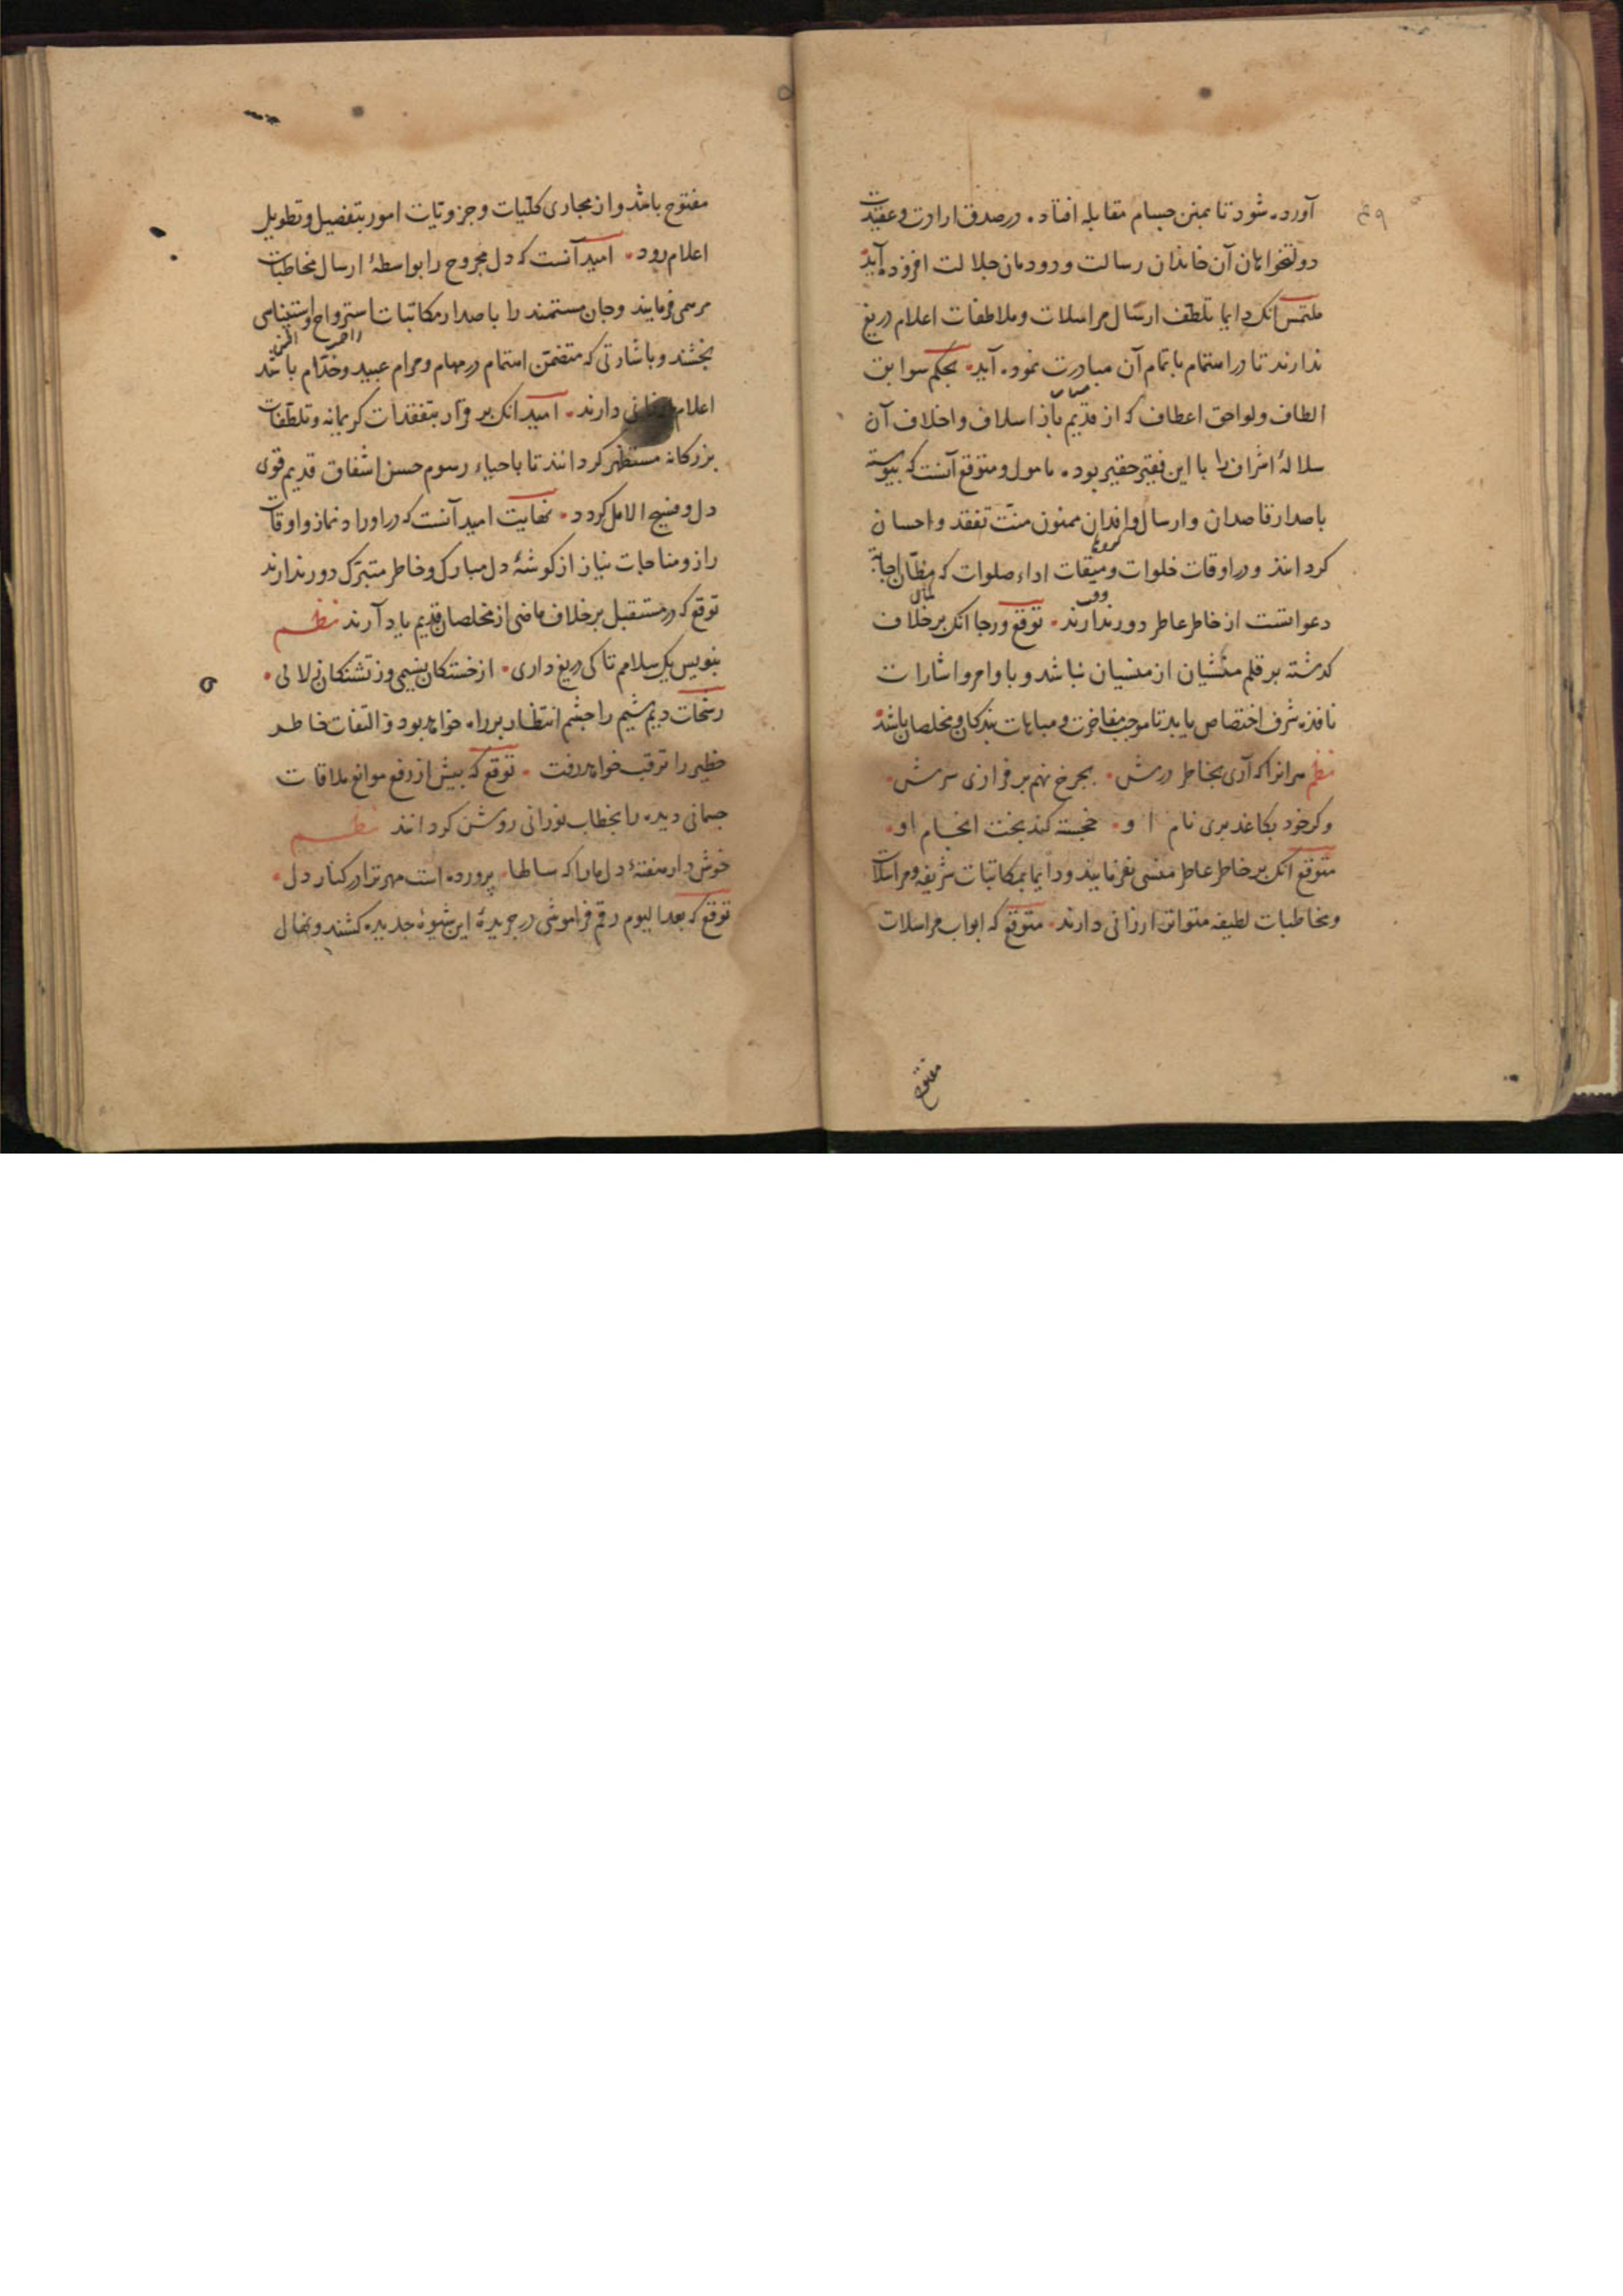 آورده شود تا بمنن جسام مقابله افتاده در صدق ارادت و عقیدت
دولتخواهان آن خاندان رسالت و دودمان جلالت افزوده آید
ملتمس انک دایما تلطف ارسال مراسلات و ملاطفات اعلام دریغ
ندارند تا در اهتمام باتمام آن مبادرت نموده آید بحکم سوابق
الطاف و لواحق اعطاف که از قدیم باز اسلاف و اخلاف آن
سلالهٔ اشراف را با این فقیر حقیر بوده مامول و متوقع آنست که پیوسته
باصدار قاصدان و ارسال وافدان ممنون منّت تفقد و احسان
کردانند و در اوقات خلوات و میقات اداء صلوات که مظانّ اجابة
دعواتست از خاطر عاطر دور ندارند توقع و رجا انک بر خلاف
کذشته بر قلم منشیان از منسیان نباشد و باوامر و اشارات
نافذه شرف اختصاص یابد تا موجب مفاخرت و مباهات بندکان و مخلصان باشد
نظم هر انرا که آری بخاطر درش بجرخ نهم بر فرازی سرش
و کر خود بکاغذ بری نام او خجسته کند بخت انجام او
متوقع انک بر خاطر عاطر منسی نفرمایند و دایما بمکاتبات شریفه و مراسلات
و مخاطبات لطیفه متواتر ارزانی دارند متوقع که ابواب مراسلات
مفتوح
مفتوح باشد و از مجاری کلّیات و جزویات امور بتفصیل و تطویل
اعلام رود امید آنست که دل مجروح را بواسطهٔ ارسال مخاطبات
مرهمی فرمایند و جان مستمند را باصدار مکاتبات استرواح و استیناسی
بخشند و باشارتی که متضمّن اهتمام در مهام و مرام عبید و خدّام باشد
اعلام ارزانی دارند امید انک بر قرار بتفقدات کریمانه و تلطّفات
بزرکانه مستظهر کردانند تا باحیاء رسوم حسن اشفاق قدیم قوی
دل و فسیح الامل کردد نهایت امید آنست که در اوراد نماز و اوقات
راز و مناجات نیاز از کوشهٔ دل مبارک و خاطر متبرّک دور ندارند
توقع که در مستقبل بر خلاف ماضی از مخلصان قدیم یاد آرند نظم
بنویس یک سلامم تا کی دریغ داری از خستکان نسیمی وز تشنکان زلالی
رشحات دیم شیم را جشم انتظار بر راه خواهد بود و التفات خاطر
خطیر را ترقب خواهد رفت توقع که بیش از رفع موانع ملاقات
جسمانی دیده را بخطاب نورانی روشن کردانند نظم
خوش دار هفتهٔ دل ما را که سالها پرورده است مهر ترا در کنار دل
توقع که بعد الیوم رقم فراموشی در جریدهٔ این شیوهٔ جدیده کشند و نهال